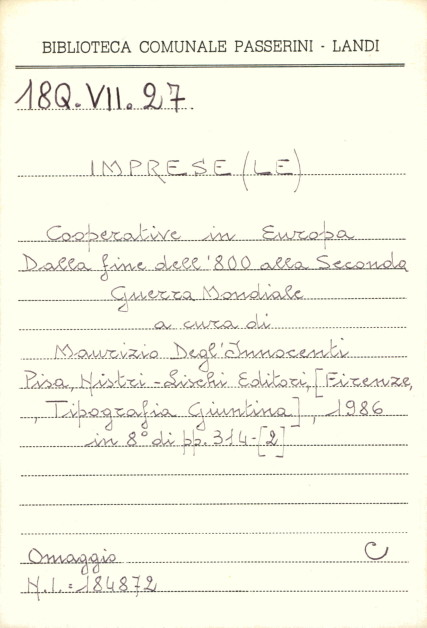 BIBLIOTECA COMUNALE PASSERINI - LANDI
18Q. VII. 27.
IMPRESE (LE)
Cooperative in Europa
Dalla fine dell'800 alla Seconda
Guerra Mondiale
a cura di
Maurizio Degl'Innocenti
Pisa, Nistri - Lischi Editori, [Firenze,
, Tipografia Giuntina], 1986
in 8° di pp. 314-[2]
Omaggio C
N.I. = 184872